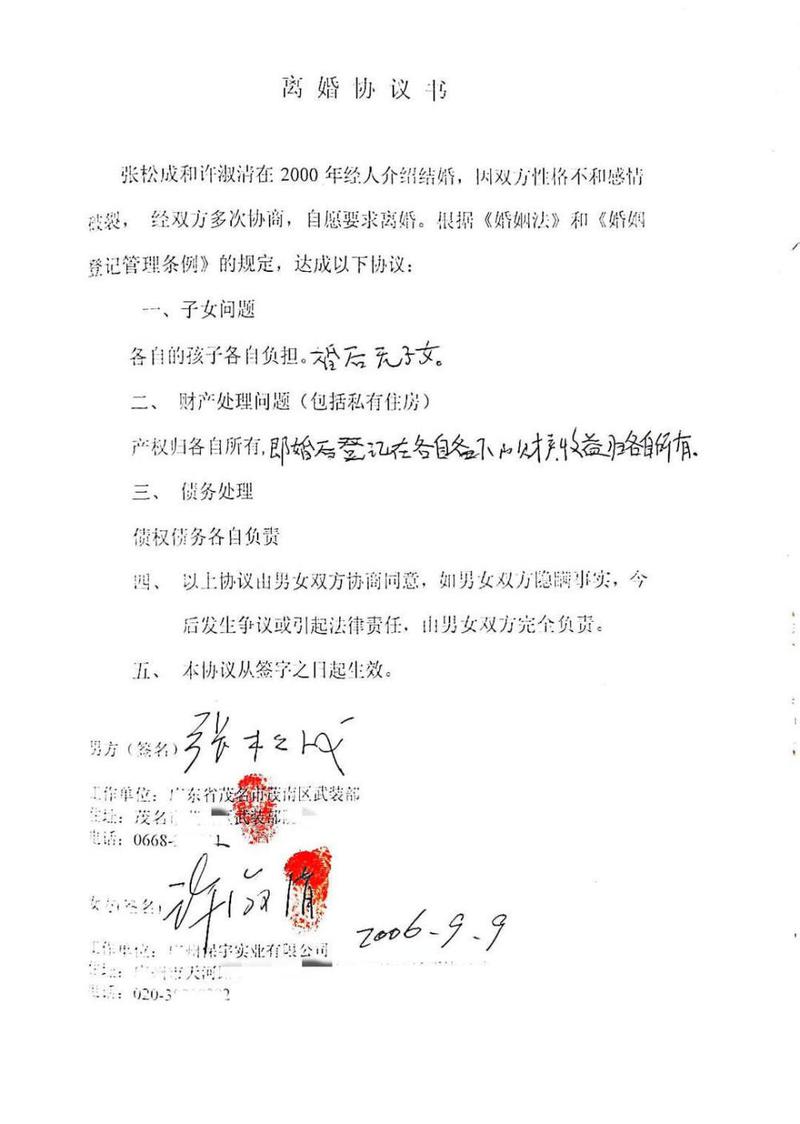 离婚协议书
张松成和许淑清在 2000 年经人介绍结婚，因双方性格不和感情
破裂， 经双方多次协商，自愿要求离婚。根据《婚姻法》和《婚姻
登记管理条例》的规定，达成以下协议：
一、子女问题
各自的孩子各自负担。婚后无子女。
二、 财产处理问题（包括私有住房）
产权归各自所有,即婚后登记在各自名下的财产收益归各自所有.
三、 债务处理
债权债务各自负责
四、 以上协议由男女双方协商同意，如男女双方隐瞒事实，今
后发生争议或引起法律责任，由男女双方完全负责。
五、 本协议从签字之日起生效。
男方（签名）张松成
工作单位：广东省茂名市茂南区武装部
住址：茂名 武装部
电话：0668-
女方(签名) 许淑清
2006-9-9
工作单位：广州 宇实业有限公司
住址：广州市天河
电话：020-3